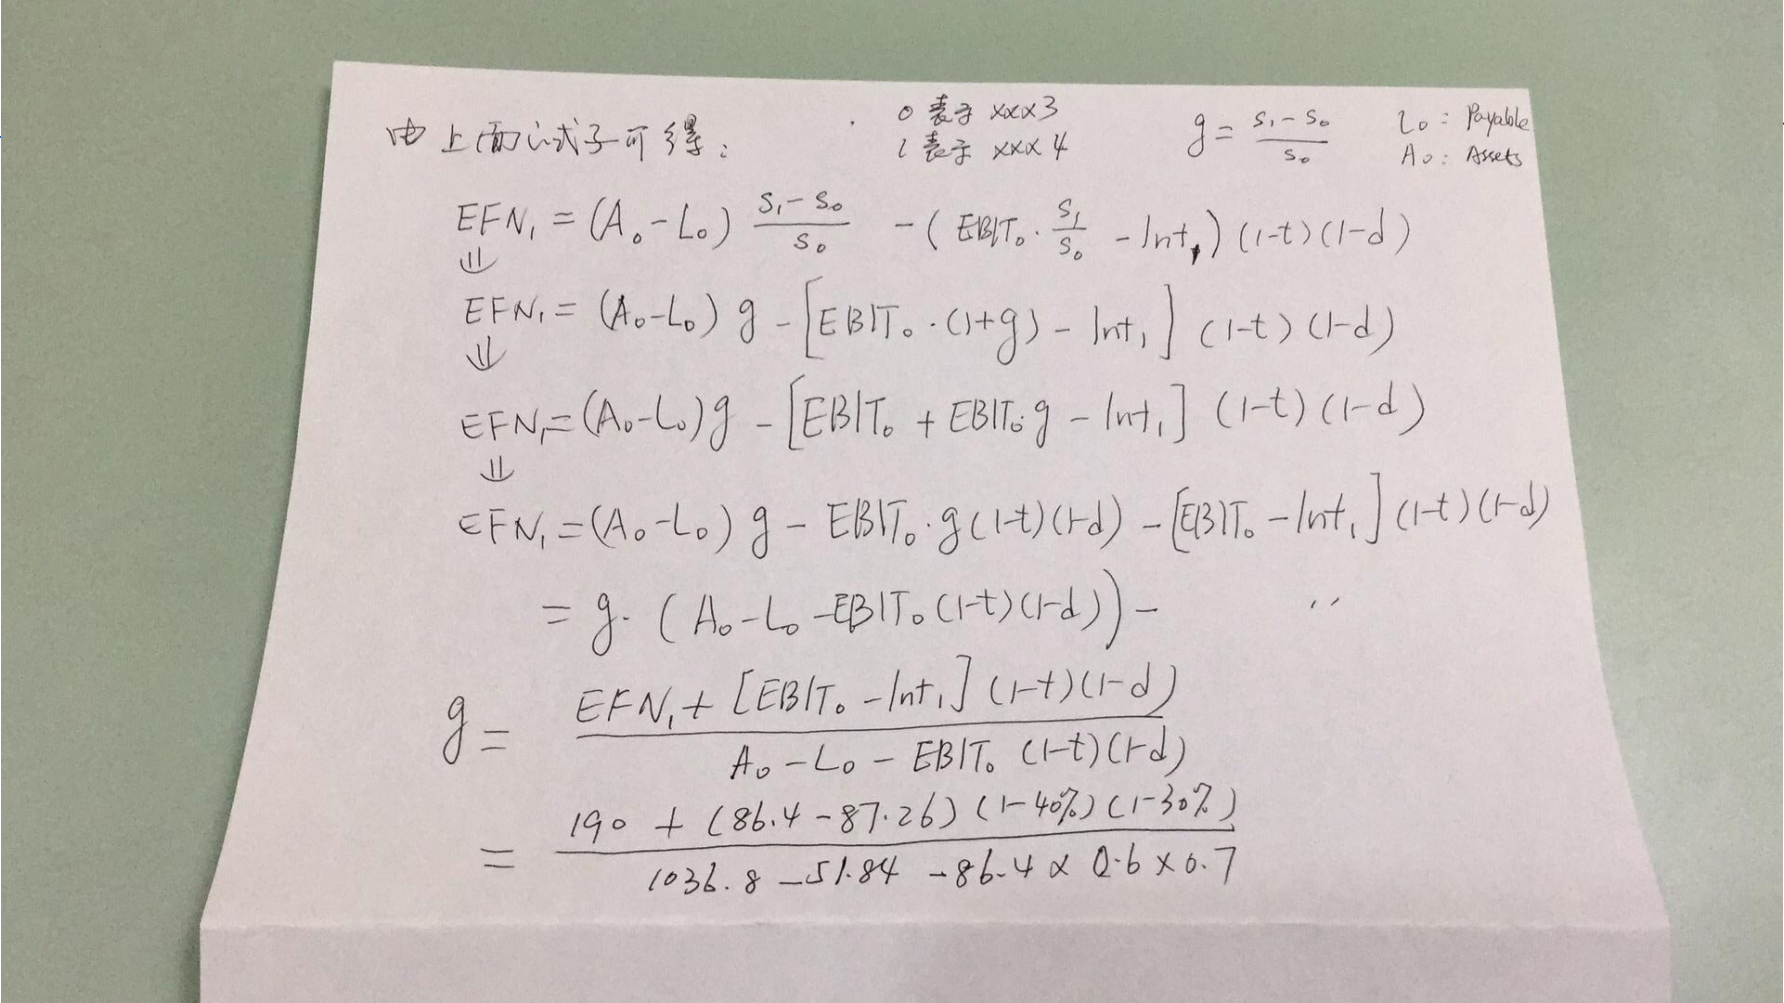 由上面的式子可得：
0 表示 xxx3
1 表示 xxx4
g = (S₁-S₀)/S₀
L₀: Payable
A₀: Assets
EFN₁ = (A₀-L₀) (S₁-S₀)/S₀ - (EBIT₀·S₁/S₀ - Int₁)(1-t)(1-d)
⇓
EFN₁ = (A₀-L₀) g - [EBIT₀·(1+g) - Int₁] (1-t)(1-d)
⇓
EFN₁ = (A₀-L₀)g - [EBIT₀ + EBIT₀·g - Int₁] (1-t)(1-d)
⇓
EFN₁ = (A₀-L₀) g - EBIT₀·g(1-t)(1-d) - [EBIT₀ - Int₁](1-t)(1-d)
= g·(A₀-L₀-EBIT₀(1-t)(1-d)) - ''
g = (EFN₁ + [EBIT₀ - Int₁](1-t)(1-d))/(A₀-L₀-EBIT₀(1-t)(1-d))
= (190 + (86.4-87.26)(1-40%)(1-30%))/(1036.8-51.84-86.4×0.6×0.7)